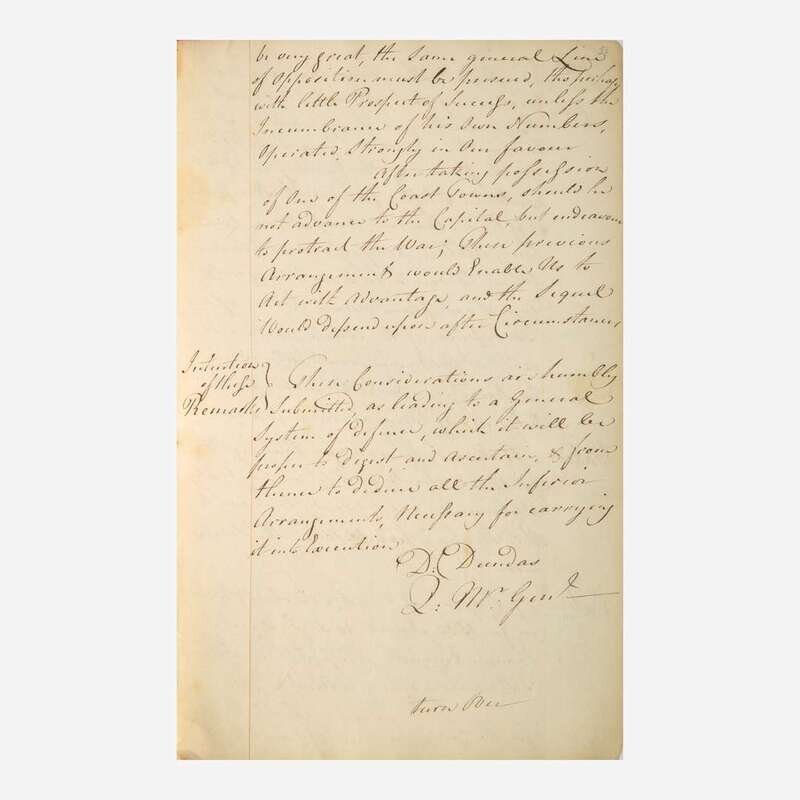 be very great, the same general Line
of opposition must be pursued, tho' perhaps
with little Prospect of Success, unless the
Incumbrance of his own Numbers,
operated Strongly in Our favour
After taking possession
of One of the Coast Towns, should he
not advance to the Capital, but endeavour
to protract the War; These previous
Arrangements would Enable Us to
Act with Advantage, and the Sequel
Would depend upon after Circumstances
Intention
of these
Remarks
These Considerations are humbly
Submitted, as leading to a General
System of defence, which it will be
proper to Digest, and Ascertain, & from
thence to deduce all the Inferior
Arrangements, Necessary for carrying
it into Execution
D: Dundas
Q: Mr. Genl.
turn Over